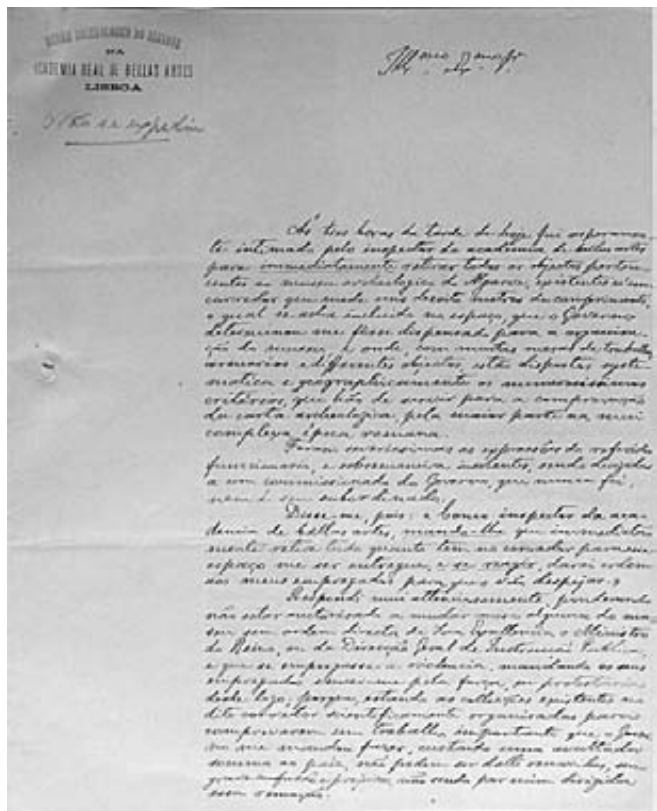 MUSEU ARCHEOLOGICO DO ALGARVE
NA
ACADEMIA REAL DE BELLAS ARTES
LISBOA
Não se expediu
Ill.mo Ex.mo Sr.
Ás tres horas da tarde de hoje fui
te intimado pelo inspector da academia de bellas artes
para immediatamente retirar todos os objectos perten-
centes ao museu archeologico do Algarve, existentes n'um
corredor que mede uns dezoito metros de comprimento,
o qual se acha incluido no espaço, que o Governo
determinou me fosse dispensado para a organisa-
ção do museu, e onde, com muitas mezas de trabalho,
armarios e differentes objectos, estão dispostos syste-
matica e geographicamente os numerosissimos
criterios, que hão de servir para a comprovação
da carta archeologica, pela maior parte na mui
complexa época romana.
Foram as expressões do referido
funccionario, e sobremaneira insolentes, sendo dirigidas
a um commissionado do Governo, que nunca foi,
nem é seu subordinado.
Disse-me, pois: e inspector da aca-
demia de bellas artes, mando-lhe que immediata-
mente retire tudo quanto tem no corredor para esse
espaço me ser entregue, e se reagir, darei ordem
aos meus empregados para que o vão despejar.»
Respondi mui attenciosamente, ponderando
não estar auctorisado a mudar cousa alguma do mu-
seu sem ordem directa de Sua Excellencia o Ministro
do Reino, ou da Direcção Geral de Instrucção Publica,
e que se empregasse a violencia, mandando os seus
empregados pela força, eu protestaria
desde logo, porque, estando as collecções existentes no
dito corredor scientificamente organisadas para
comprovarem um trabalho importante que o Gover-
no me mandou fazer, custando uma avultada
somma ao paiz, não podem ser d'alli removidas, sem
grave confusão e prejuizo, não sendo por mim dirigida
essa remoção.